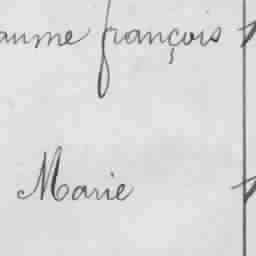 aume françois
Marie